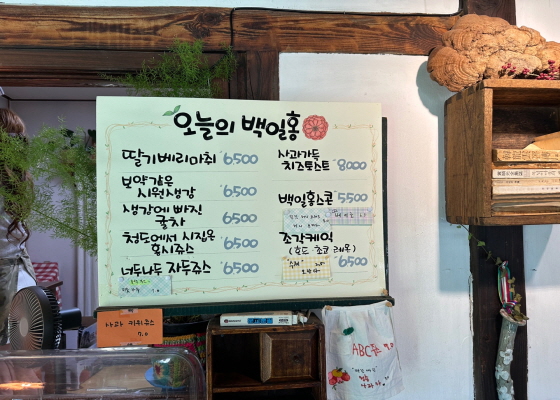 오늘의 백일홍
딸기베리마취 6500
보약같은
시원생강 6500
생강에 빠진
귤차 6500
청도에서 시집온
홍시쥬스 6500
너두나두 자두쥬스 6500
사과가득
치즈토스트 8000
백일홍스콘 5500
조각케익
(호두·초코·레몬)
6500
사과 키위쥬스
7.0
ABC쥬스